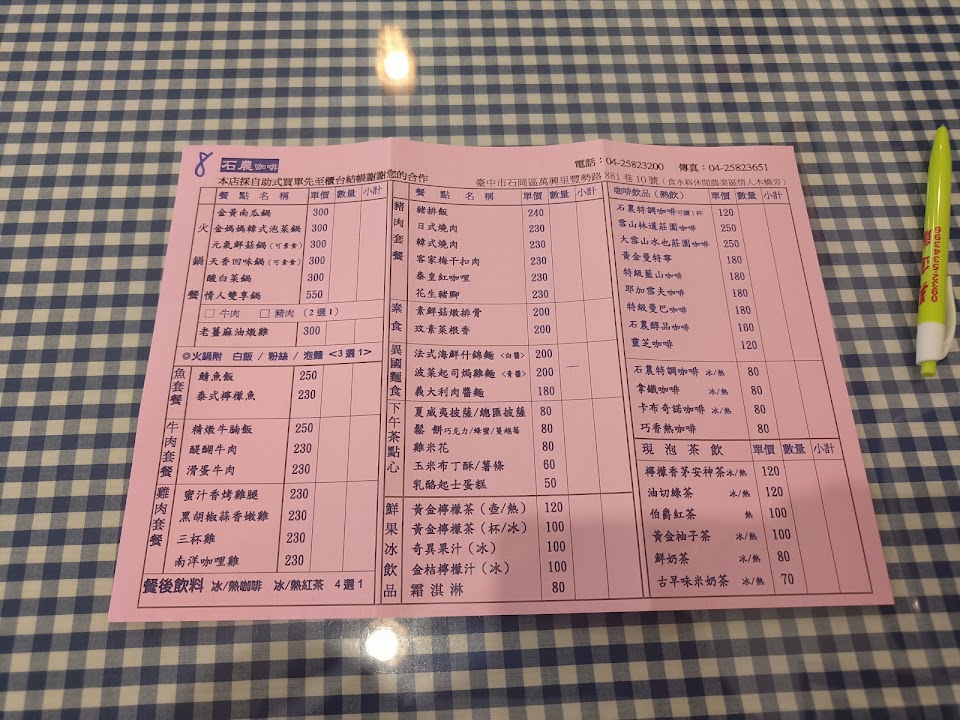 8 石農咖啡
電話：04-25823200 傳真：04-25823651
本店採自助式買單先至櫃台結帳謝謝您的合作
臺中市石岡區萬興里豐勢路 881 巷 10 號（食水嵙休閒農業區情人木橋旁）
餐點名稱 單價 數量 小計
火鍋餐
金黃南瓜鍋 300
金媽媽韓式泡菜鍋 300
元氣鮮菇鍋（可素食） 300
天香回味鍋（可素食） 300
酸白菜鍋 300
情人雙享鍋 550
□ 牛肉 □ 豬肉（2 選 1）
老薑麻油燉雞 300
◎火鍋附 白飯 / 粉絲 / 泡麵 <3 選 1>
魚套餐
鯖魚飯 250
泰式檸檬魚 230
牛肉套餐
精燉牛腩飯 250
醍醐牛肉 230
滑蛋牛肉 230
雞肉套餐
蜜汁香烤雞腿 230
黑胡椒蒜香嫩雞 230
三杯雞 230
南洋咖哩雞 230
餐後飲料 冰/熱咖啡 冰/熱紅茶 4 選 1
餐點名稱 單價 數量 小計
豬肉套餐
豬排飯 240
日式燒肉 230
韓式燒肉 230
客家梅干扣肉 230
泰皇紅咖哩 230
花生豬腳 230
素食
素鮮菇燉排骨 200
玫素菜根香 200
異國麵食
法式海鮮什錦麵 <白醬> 200
波菜起司焗雞麵 <青醬> 200
義大利肉醬麵 180
下午茶點心
夏威夷披薩/總匯披薩 80
鬆餅 巧克力/蜂蜜/蔓越莓 80
雞米花 80
玉米布丁酥/薯條 60
乳酪起士蛋糕 50
鮮果冰飲品
黃金檸檬茶（壺/熱） 120
黃金檸檬茶（杯/冰） 100
奇異果汁（冰） 100
金桔檸檬汁（冰） 100
霜淇淋 80
咖啡飲品（熱飲） 單價 數量 小計
石農特調咖啡可續1杯 120
雪山林道莊園咖啡 250
大雪山水也莊園咖啡 250
黃金曼特寧 180
特級藍山咖啡 180
耶加雪夫咖啡 180
特級曼巴咖啡 180
石農醇品咖啡 160
靈芝咖啡 120
石農特調咖啡 冰/熱 80
拿鐵咖啡 冰/熱 80
卡布奇諾咖啡 冰/熱 80
巧香熱咖啡 80
現泡茶飲 單價 數量 小計
檸檬香茅安神茶冰/熱 120
油切綠茶 冰/熱 120
伯爵紅茶 熱 100
黃金柚子茶 冰/熱 100
鮮奶茶 冰/熱 80
古早味米奶茶 冰/熱 70